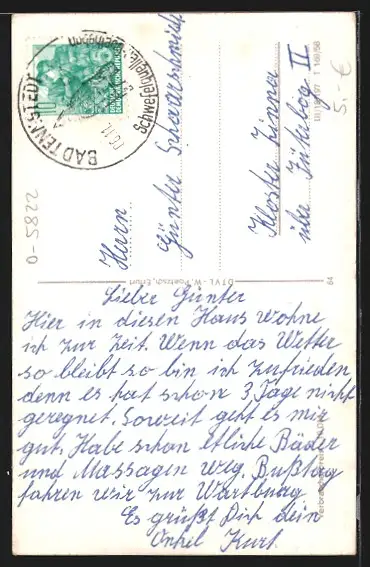 BAD TENNSTEDT
Schwefelquellen
10
DEUTSCHE DEMOKRATISCHE REPUBLIK
Herrn
Günter Schaarschmidt
Kloster Zinna
über Jüterbog II
5,-€
0-5822
DTVL - W. Poetzsch, Erfurt
64
Lieber Günter
Hier in diesen Haus wohne
ich zur Zeit. Wenn das Wetter
so bleibt so bin ich zufrieden
denn es hat schon 3 Tage nicht
geregnet. Soweit geht es mir
gut. Habe schon etliche Bäder
und Massagen weg. Bußtag
fahren wir zur Wartburg
Es grüßt Dich dein
Onkel Kurt